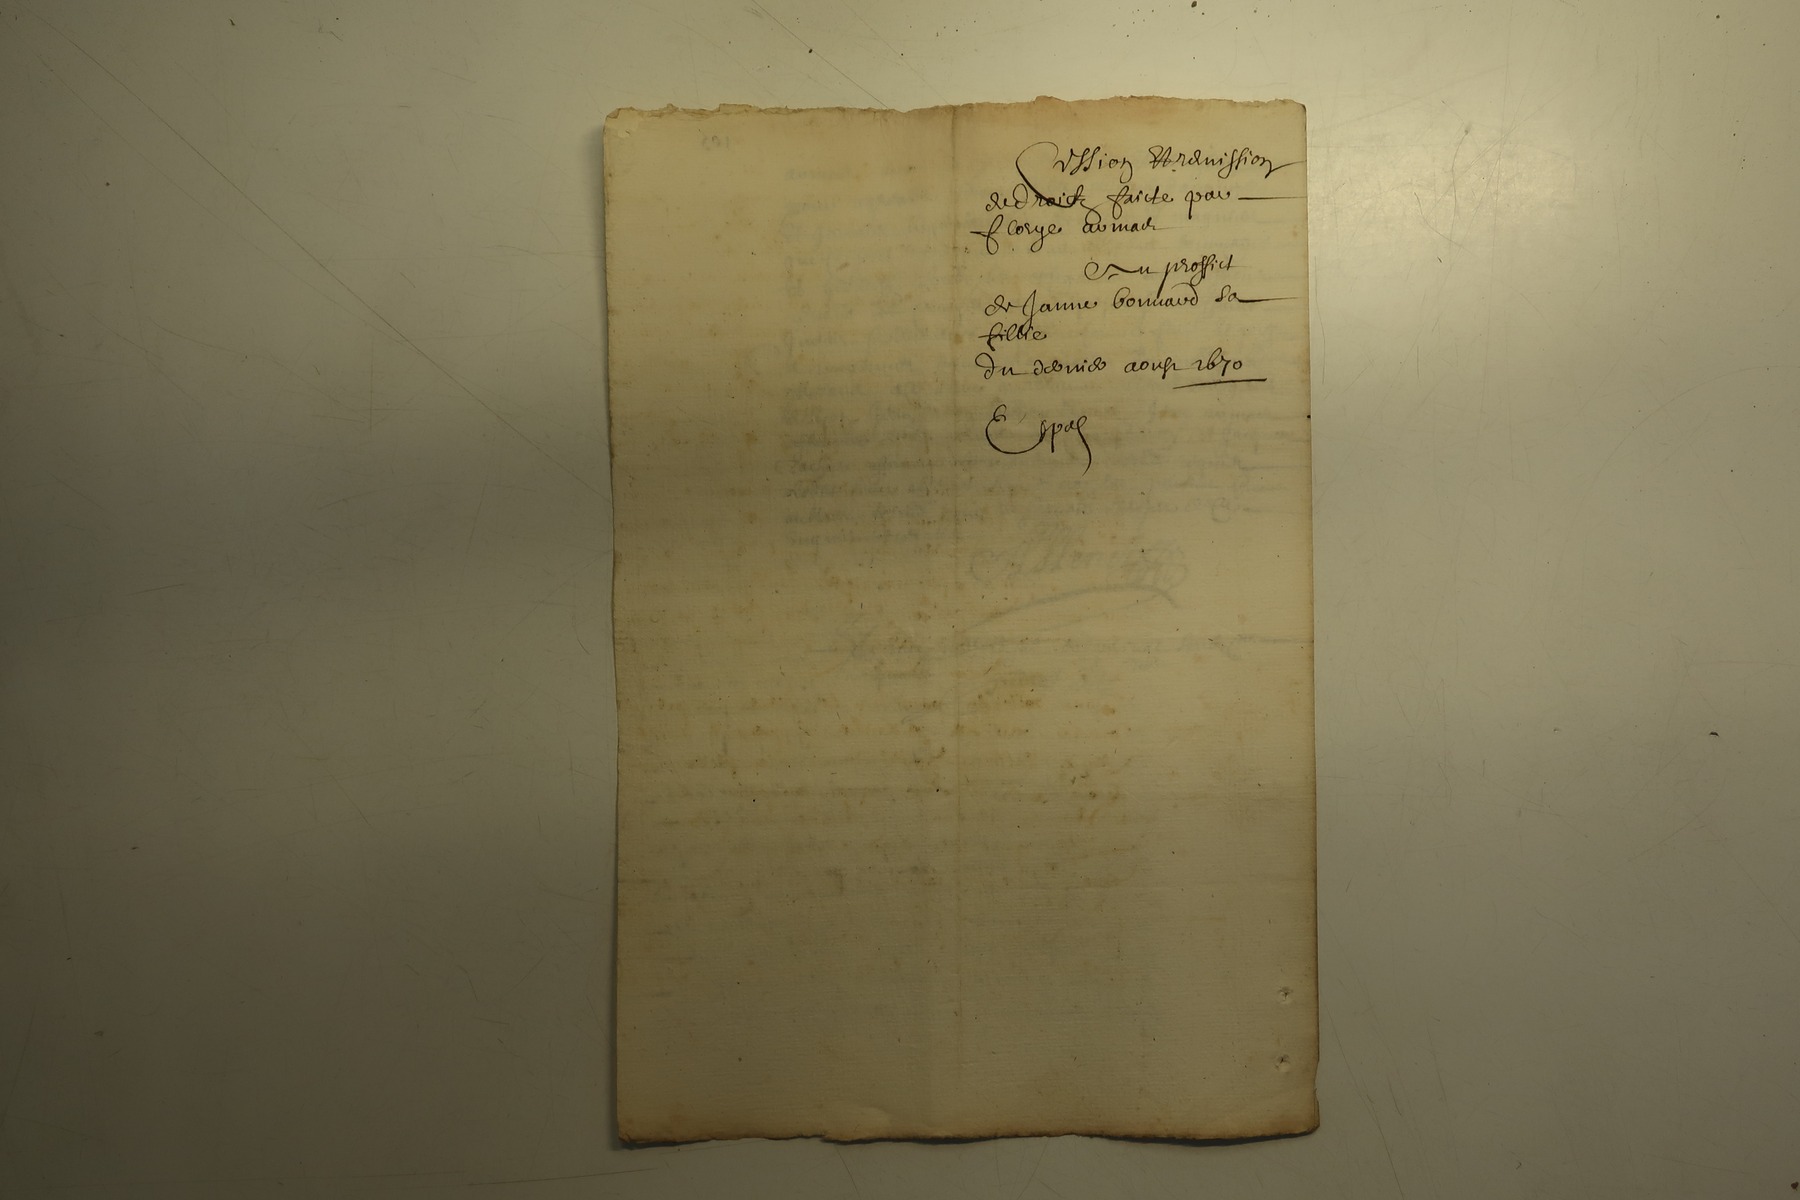 Cession Et remission
de droictz faicte par
florye armad
Au proffict
de Janne bonnard sa
fillie
du dernier aoust 1670
Exped